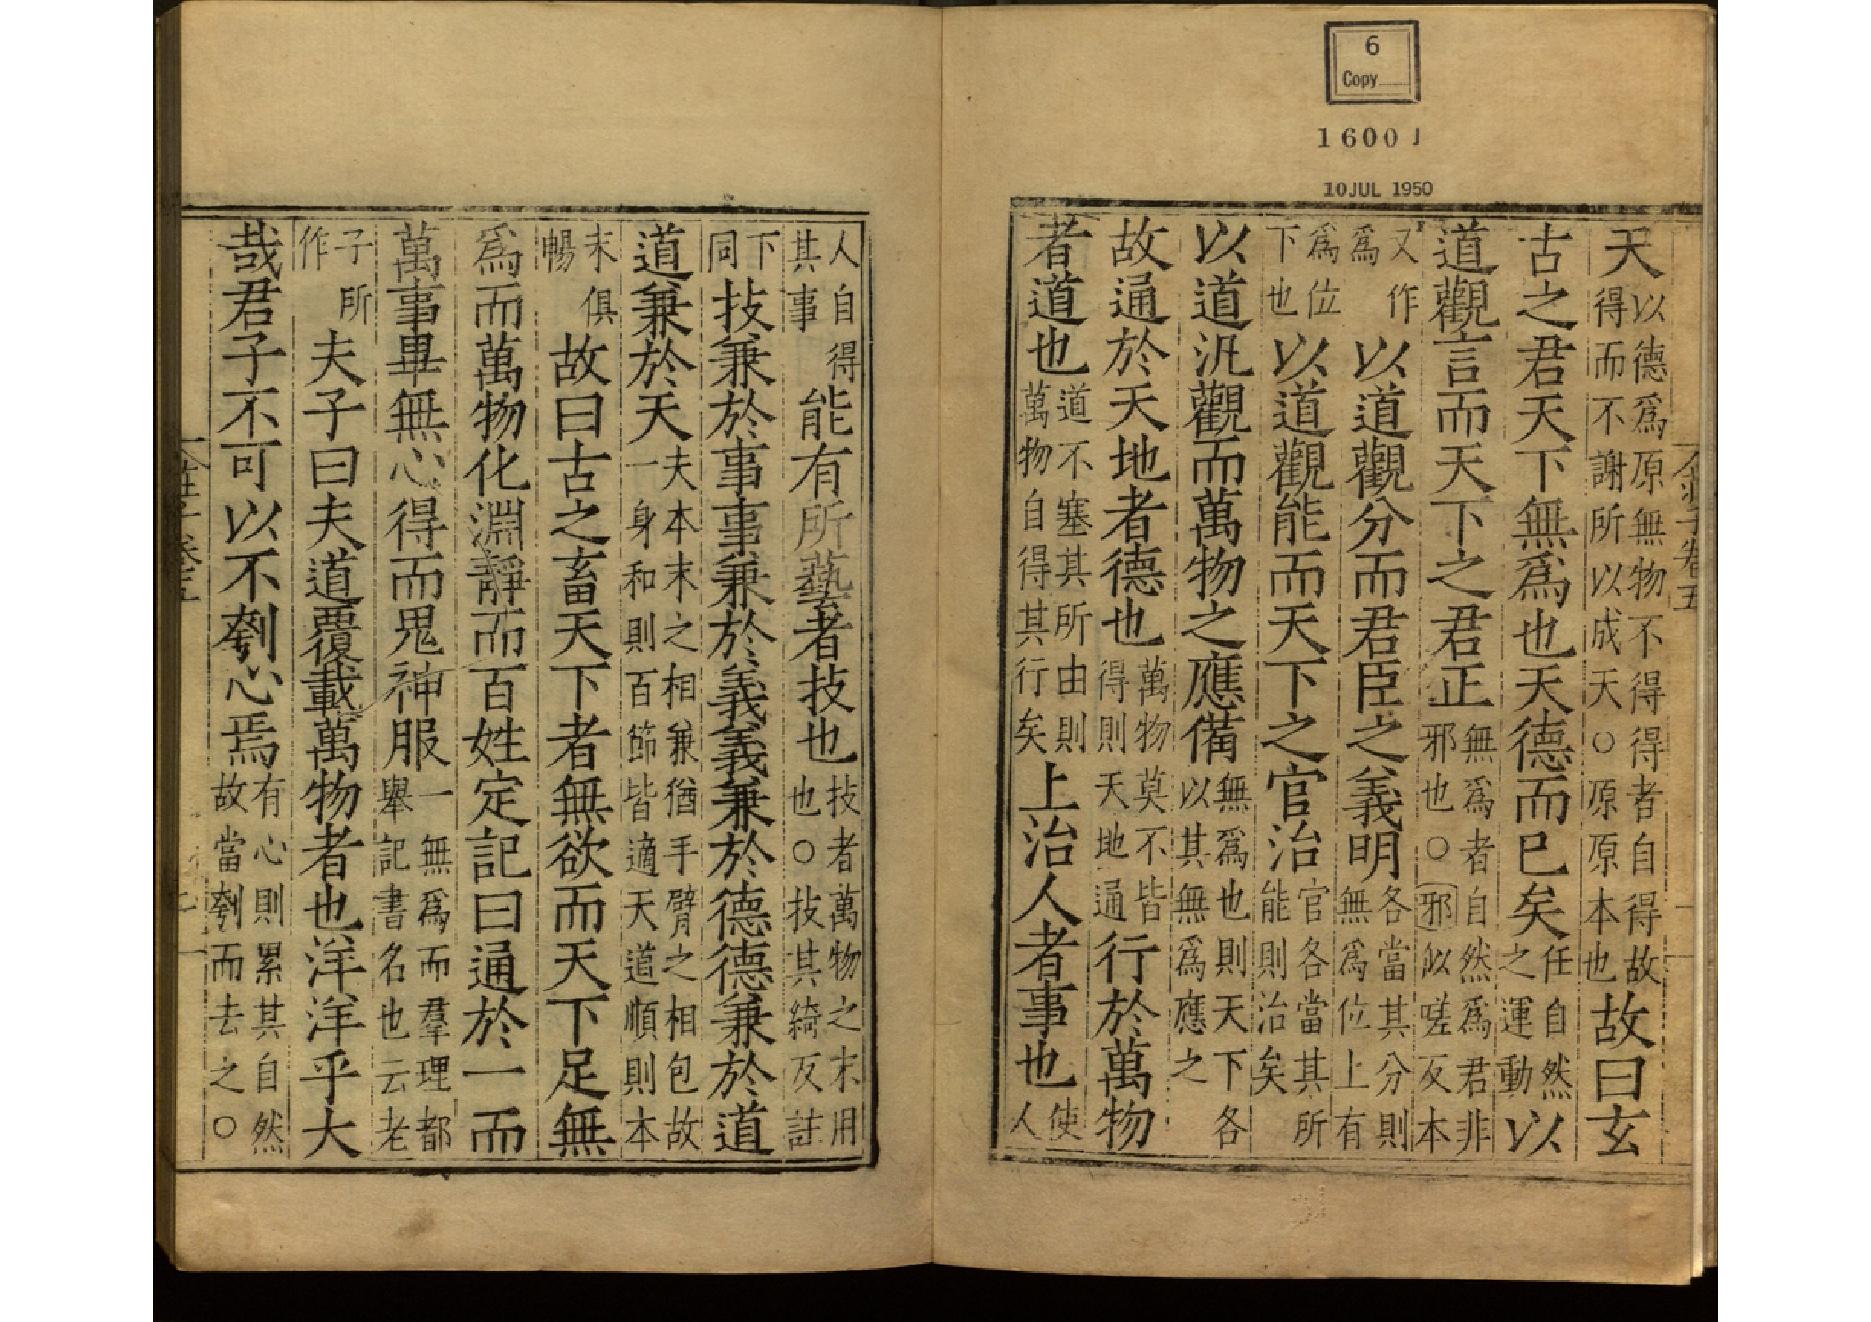 6
Copy
1600 J
10 JUL 1950
莊子卷五
天以德爲原無物不得得者自得故得而不謝所以成天○原原本也故曰玄
古之君天下無爲也天德而巳矣任自然之運動以
道觀言而天下之君正無爲者自然爲君非邪也○邪似嗟反本
又作爲以道觀分而君臣之義明各當其分則無爲位上有
爲位下也以道觀能而天下之官治官各當其所能則治矣
以道汎觀而萬物之應備無爲也則天下各以其無爲應之
故通於天地者德也萬物莫不皆得則天地通行於萬物
者道也道不塞其所由則萬物自得其行矣上治人者事也使人
人自得其事能有所藝者技也技者萬物之末用也○技其綺反註
下同技兼於事事兼於義義兼於德德兼於道
道兼於天夫本末之相兼猶手臂之相包故一身和則百節皆適天道順則本
末俱暢故曰古之畜天下者無欲而天下足無
爲而萬物化淵靜而百姓定記曰通於一而
萬事畢無心得而鬼神服一無爲而羣理都舉記書名也云老
子所作夫子曰夫道覆載萬物者也洋洋乎大
哉君子不可以不刳心焉有心則累其自然故當刳而去之○